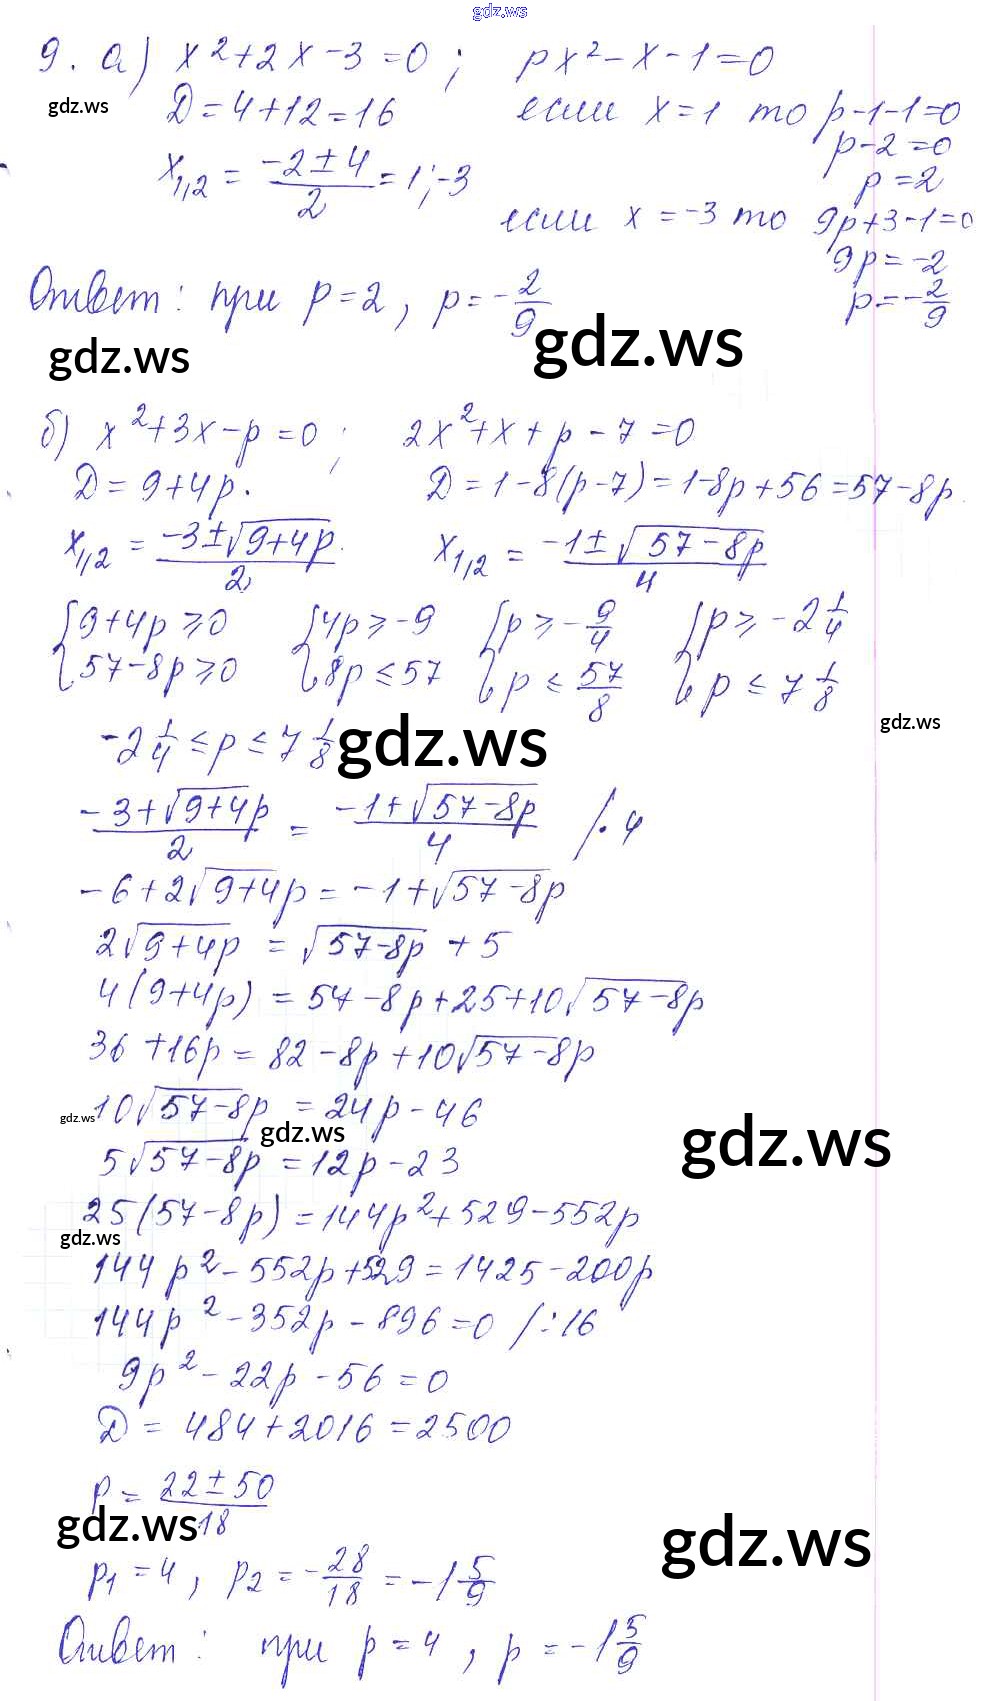 gdz.ws
9. а) x²+2x-3=0; px²-x-1=0
gdz.ws
D=4+12=16 если x=1 то p-1-1=0
p-2=0
x₁,₂ = (-2±4)/2 = 1; -3 p=2
если x=-3 то 9p+3-1=0
9p=-2
Ответ: при p=2, p=-2/9 p=-2/9
gdz.ws
gdz.ws
б) x²+3x-p=0; 2x²+x+p-7=0
D=9+4p. D=1-8(p-7)=1-8p+56=57-8p
x₁,₂ = (-3±√(9+4p))/2 x₁,₂ = (-1±√(57-8p))/4
{9+4p≥0 {4p≥-9 {p≥-9/4 {p≥-2 1/4
{57-8p≥0 {8p≤57 {p≤57/8 {p≤7 1/8
gdz.ws
-2 1/4 ≤p≤7 1/8 gdz.ws
(-3+√(9+4p))/2 = (-1+√(57-8p))/4 /·4
-6+2√(9+4p)=-1+√(57-8p)
2√(9+4p) = √(57-8p) +5
4(9+4p) = 57-8p+25+10√(57-8p)
36+16p=82-8p+10√(57-8p)
gdz.ws 10√(57-8p) =24p-46
gdz.ws
gdz.ws
5√(57-8p) =12p-23
25(57-8p)=144p²+529-552p
gdz.ws
144p²-552p+529=1425-200p
144p²-352p-896=0 /:16
9p²-22p-56=0
D=484+2016=2500
p=(22±50)/18
gdz.ws
gdz.ws
p₁=4, p₂=-28/18=-1 5/9
Ответ: при p=4, p=-1 5/9